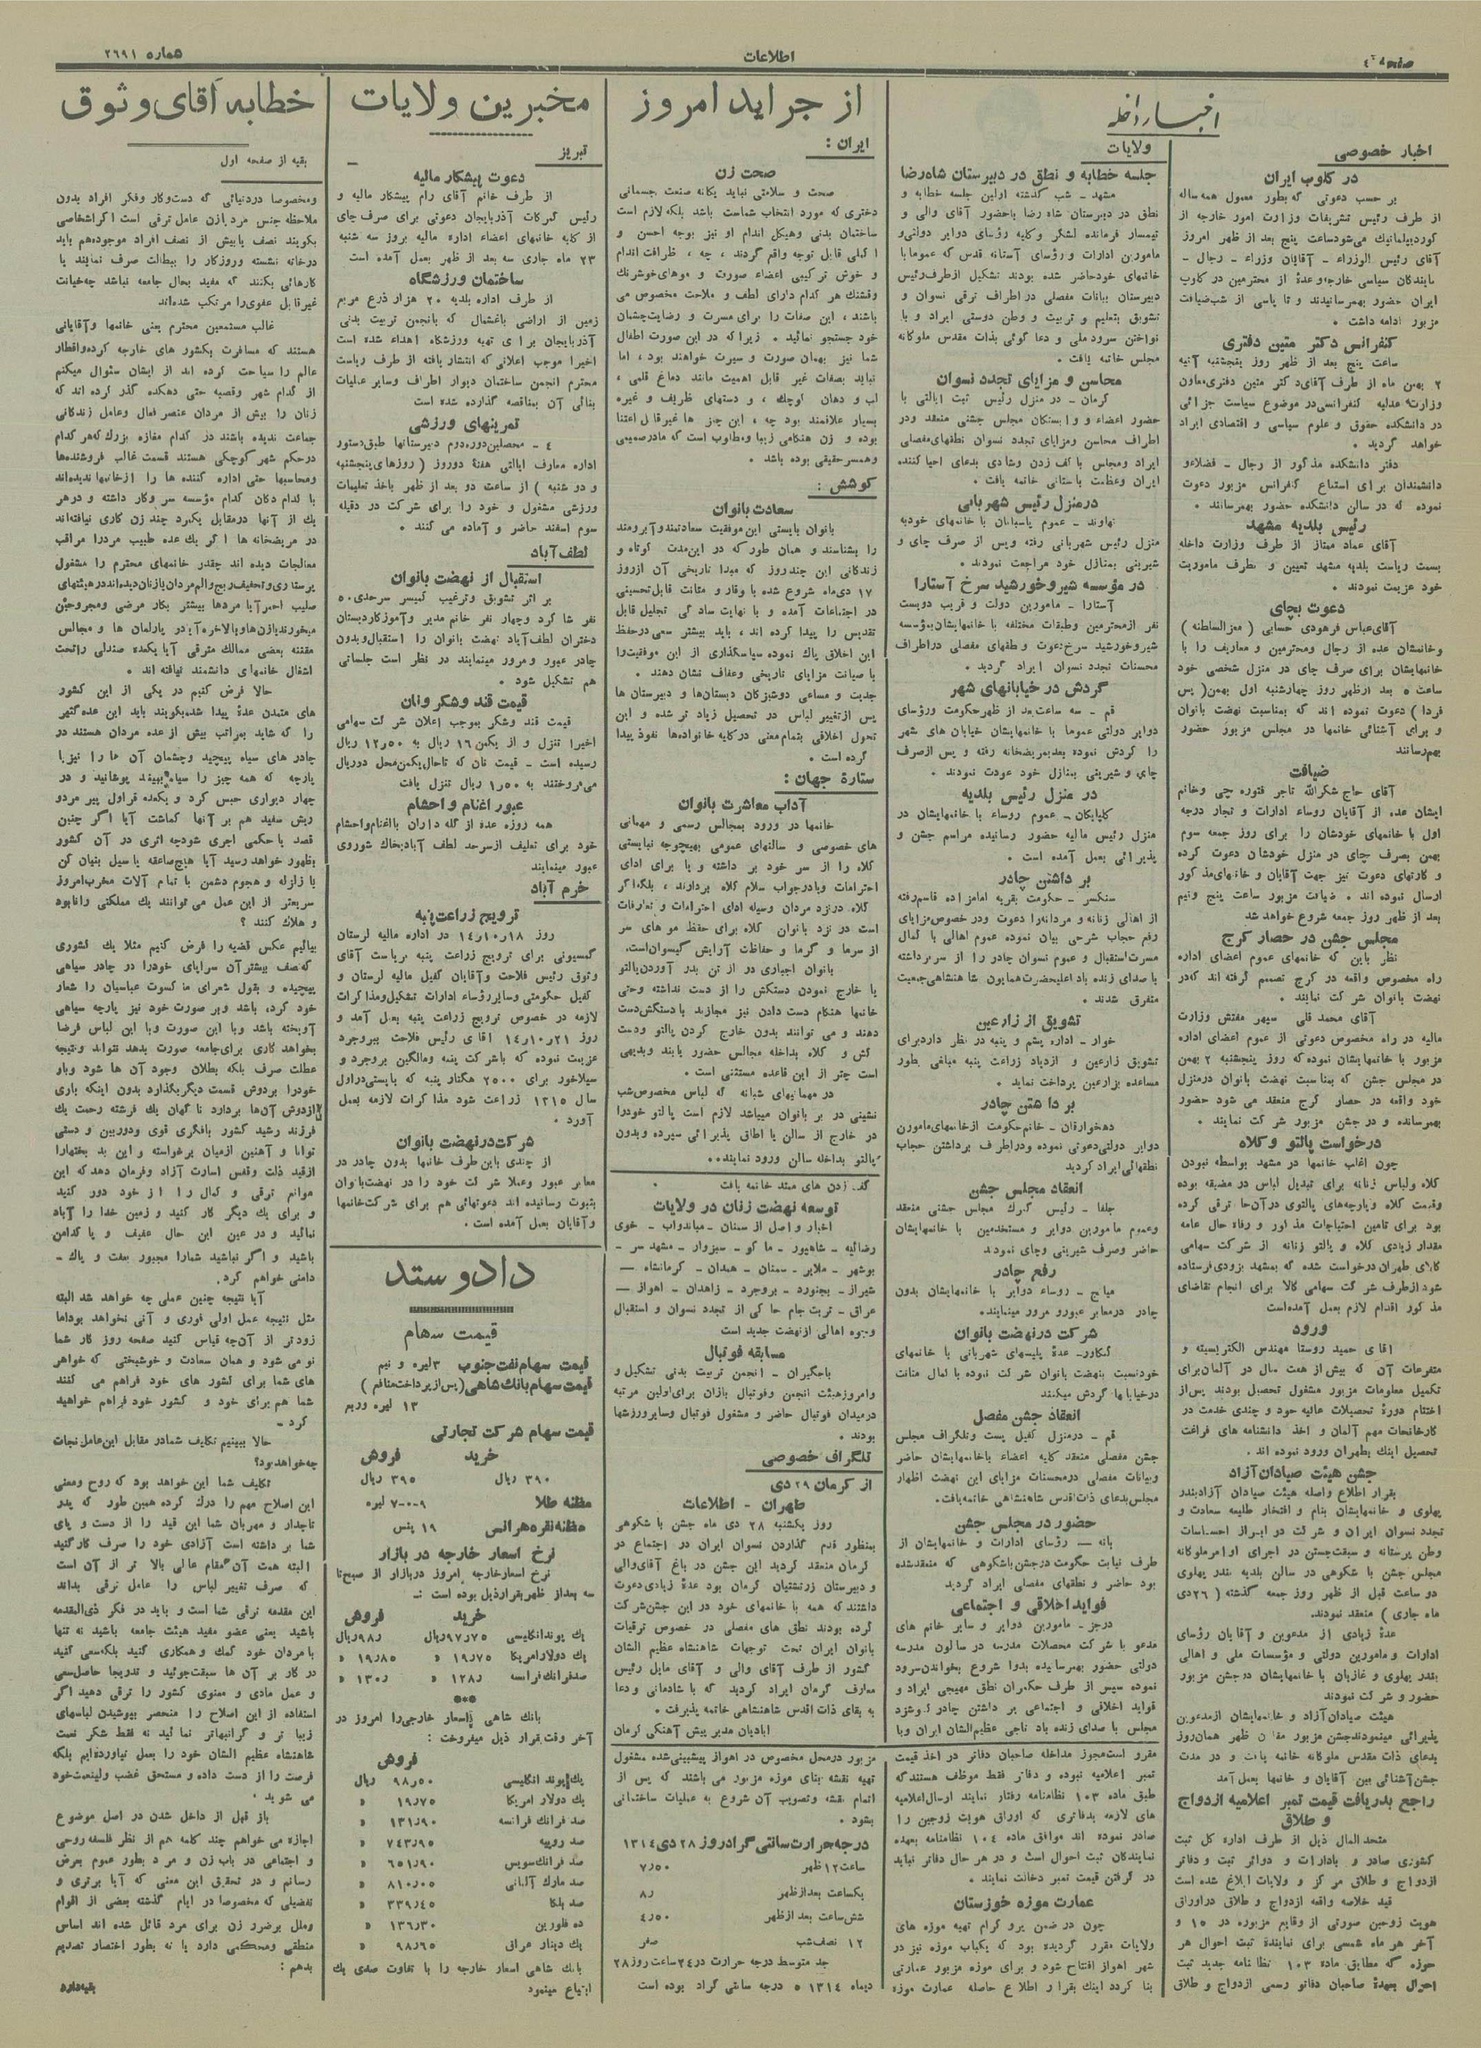 صفحه ٤
اطلاعات
شماره ٢٦٩١
اخبار داخله
اخبار خصوصی
در کلوب ایران
بر حسب دعوتی که بطور معمول همه ساله
از طرف رئیس تشریفات وزارت امور خارجه از
کوردیپلماتیک می‌شود ساعت پنج بعد از ظهر امروز
آقای رئیس الوزراء - آقایان وزراء - رجال -
نمایندگان سیاسی خارجه و عدهٔ از محترمین در کلوب
ایران حضور بهمرسانیدند و تا پاسی از شب ضیافت
مزبور ادامه داشت .
کنفرانس دکتر متین دفتری
ساعت پنج بعد از ظهر روز پنجشنبه آتیه
٢ بهمن ماه از طرف آقای دکتر متین دفتری معاون
وزارت عدلیه کنفرانسی در موضوع سیاست جزائی
در دانشکده حقوق و علوم سیاسی و اقتصادی ایراد
خواهد گردید .
دفتر دانشکده مذکور از رجال - فضلاء و
دانشمندان برای استماع کنفرانس مزبور دعوت
نموده که در سالن دانشکده حضور بهمرسانند .
رئیس بلدیه مشهد
آقای عماد ممتاز از طرف وزارت داخله
بسمت ریاست بلدیه مشهد تعیین و بطرف ماموریت
خود عزیمت نمودند .
دعوت بچای
آقای عباس فرهودی حسابی ( معزالسلطنه )
و خانمشان عده از رجال و محترمین و معاریف را با
خانمهایشان برای صرف چای در منزل شخصی خود
ساعت ٥ بعد از ظهر روز چهارشنبه اول بهمن ( پس
فردا ) دعوت نموده اند که بمناسبت نهضت بانوان
و برای آشنائی خانمها در مجلس مزبور حضور
بهمرسانند
ضیافت
آقای حاج شکرالله تاجر فتوره چی و خانم
ایشان عده از آقایان روساء ادارات و تجار درجه
اول با خانمهای خودشان را برای روز جمعه سوم
بهمن بصرف چای در منزل خودشان دعوت کرده
و کارتهای دعوت نیز جهت آقایان و خانمهای مذکور
ارسال نموده اند . ضیافت مزبور ساعت پنج ونیم
بعد از ظهر روز جمعه شروع خواهد شد
مجلس جشن در حصار کرج
نظر باین که خانمهای عموم اعضای اداره
راه مخصوص واقعه در کرج تصمیم گرفته اند که در
نهضت بانوان شرکت نمایند .
آقای محمد قلی سپهر مفتش وزارت
مالیه در راه مخصوص دعوتی از عموم اعضای اداره
مزبور با خانمهایشان نموده که روز پنجشنبه ٢ بهمن
در مجلس جشن که بمناسبت نهضت بانوان در منزل
خود واقعه در حصار کرج منعقد می شود حضور
بهمرسانده و در جشن مزبور شرکت نمایند .
درخواست پالتو و کلاه
چون اغلب خانمها در مشهد بواسطه نبودن
کلاه و لباس زنانه برای تبدیل لباس در مضیقه بوده
و قیمت کلاه و پارچه‌های پالتوی در آن جا ترقی کرده
بود برای تامین احتیاجات مذکور و رفاه حال عامه
مقدار زیادی کلاه و پالتو زنانه از شرکت سهامی
کالای طهران درخواست شده که بمشهد بزودی فرستاده
شود از طرف شرکت سهامی کالا برای انجام تقاضای
مذکور اقدام لازم بعمل آمده است
ورود
آقای حمید روستا مهندس الکتریسیته و
متفرعات آن که بیش از هفت سال در آلمان برای
تکمیل معلومات مزبور مشغول تحصیل بودند پس از
اختتام دورهٔ تحصیلات عالیه خود و چندی خدمت در
کارخانجات مهم آلمان و اخذ دانشنامه های فراغت
تحصیل اینك بطهران ورود نموده اند .
جشن هیئت صیادان آزاد
بقرار اطلاع واصله هیئت صیادان آزاد بندر
پهلوی و خانمهایشان بنام و افتخار طلیعه سعادت و
تجدد نسوان ایران و شرکت در ابراز احساسات
وطن پرستانه و سبقت جستن در اجرای اوامر ملوکانه
مجلس جشن با شکوهی در سالن بلدیه بندر پهلوی
دو ساعت قبل از ظهر روز جمعه گذشته ( ٢٦ دی
ماه جاری ) منعقد نمودند.
عدهٔ زیادی از مدعوین و آقایان رؤسای
ادارات و مامورین دولتی و مؤسسات ملی و اهالی
بندر پهلوی و غازیان با خانمهایشان در جشن مزبور
حضور و شرکت نمودند
هیئت صیادان آزاد و خانمهایشان از مدعوین
پذیرائی مینمودند جشن مزبور مقارن ظهر همان روز
بدعای ذات مقدس ملوکانه خاتمه یافت و در مدت
جشن آشنائی بین آقایان و خانمها بعمل آمد
راجع بدریافت قیمت تمبر اعلامیه ازدواج
و طلاق
متحدالمال ذیل از طرف اداره کل ثبت
کشوری صادر و بادارات و دوائر ثبت و دفاتر
ازدواج و طلاق مرکز و ولایات ابلاغ شده است
قید خلاصه واقعه ازدواج و طلاق در اوراق
هویت زوجین صورتی از وقایع مزبوره در ١٥ و
آخر هر ماه شمسی برای نمایندهٔ ثبت احوال هر
حوزه که مطابق ماده ١٠٣ نظامنامه جدید ثبت
احوال بعهدهٔ صاحبان دفاتر رسمی ازدواج و طلاق
ولایات
جلسه خطابه و نطق در دبیرستان شاه رضا
مشهد - شب گذشته اولین جلسه خطابه و
نطق در دبیرستان شاه رضا باحضور آقای والی و
تیمسار فرمانده لشگر و کلیه رؤسای دوایر دولتی و
مامورین ادارات و رؤسای آستانه قدس که عموما با
خانمهای خود حاضر شده بودند تشکیل از طرف رئیس
دبیرستان بیانات مفصلی در اطراف ترقی نسوان و
تشویق بتعلیم و تربیت و وطن دوستی ایراد و با
نواختن سرود ملی و دعا گوئی بذات مقدس ملوکانه
مجلس خاتمه یافت .
محاسن و مزایای تجدد نسوان
کرمان - در منزل رئیس ثبت ایالتی با
حضور اعضاء و وابستگان مجلس جشنی منعقد و در
اطراف محاسن و مزایای تجدد نسوان نطقهای مفصلی
ایراد و مجلس با کف زدن و شادی بدعای احیا کننده
ایران و عظمت باستانی خاتمه یافت .
در منزل رئیس شهربانی
نهاوند - عموم پاسبانان با خانمهای خود به
منزل رئیس شهربانی رفته و پس از صرف چای و
شیرینی بمنازل خود مراجعت نمودند.
در مؤسسه شیر و خورشید سرخ آستارا
آستارا - مامورین دولت و قریب دویست
نفر از محترمین و طبقات مختلفه با خانمهایشان بمؤسسه
شیر و خورشید سرخ دعوت و نطقهای مفصلی در اطراف
محسنات تجدد نسوان ایراد گردید .
گردش در خیابانهای شهر
قم - سه ساعت بعد از ظهر حکومت و رؤسای
دوایر دولتی عموما با خانمهایشان خیابان های شهر
را گردش نموده بعد بمریضخانه رفته و پس از صرف
چای و شیرینی بمنازل خود عودت نمودند .
در منزل رئیس بلدیه
گلپایگان - عموم روساء با خانمهایشان در
منزل رئیس مالیه حضور رسانیده مراسم جشن و
پذیرائی بعمل آمده است .
بر داشتن چادر
سنگسر - حکومت بقریه امامزاده قاسم رفته
از اهالی زنانه و مردانه را دعوت و در خصوص مزایای
رفع حجاب شرحی بیان نموده عموم اهالی با کمال
مسرت استقبال و عموم نسوان چادر را از سر برداشته
با صدای زنده باد اعلیحضرت همایون شاهنشاهی جمعیت
متفرق شدند .
تشویق از زارعین
خوار - اداره پشم و پنبه در نظر دارد برای
تشویق زارعین و ازدیاد زراعت پنبه مبالغی بطور
مساعده بزارعین پرداخت نماید .
بر داشتن چادر
دهخوارقان - خانم حکومت از خانمهای مامورین
دوایر دولتی دعوتی نموده و در اطراف برداشتن حجاب
نطقهائی ایراد کردید
انعقاد مجلس جشن
جلفا - رئیس گمرك مجلس جشنی منعقد
و عموم مامورین دوایر و مستخدمین با خانمهایشان
حاضر و صرف شیرینی و چای نمودند
رفع چادر
میانج - روساء دوایر با خانمهایشان بدون
چادر در معابر عبور و مرور مینمایند.
شرکت در نهضت بانوان
کنگاور - عدهٔ پلیسهای شهربانی با خانمهای
خود نسبت بنهضت بانوان شرکت نموده با کمال متانت
در خیابانها گردش میکنند
انعقاد جشن مفصل
قم - در منزل کفیل پست و تلگراف مجلس
جشن مفصلی منعقد کلیه اعضاء با خانمهایشان حاضر
و بیانات مفصلی در محسنات مزایای این نهضت اظهار
مجلس بدعای ذات اقدس شاهنشاهی خاتمه یافت .
حضور در مجلس جشن
بانه - رؤسای ادارات و خانمهایشان از
طرف نیابت حکومت در جشن باشکوهی که منعقد شده
بود حاضر و نطقهای مفصلی ایراد گردید
فواید اخلاقی و اجتماعی
درجز - مامورین دوایر و سایر خانم های
مدعو با شرکت محصلات مدرسه در سالون مدرسه
دولتی حضور بهمرسانیده بدوا شروع بخواندن سرود
نموده سپس از طرف حکمران نطق مهیجی ایراد و
فواید اخلاقی و اجتماعی بر داشتن چادر گوشزد
مجلس با صدای زنده باد ناجی عظیم الشان ایران و با
کف زدن های ممتد خاتمه یافت .
توسعه نهضت زنان در ولایات
اخبار واصل از سمنان - میاندواب - خوی
رضائیه - شاهپور - ماکو - سبزوار - مشهد سر -
بوشهر - ملایر - سمنان - همدان - کرمانشاه -
شیراز - بجنورد - بروجرد - زاهدان - اهواز -
عراق - تربت جام حاکی از تجدد نسوان و استقبال
وجوه اهالی از نهضت جدید است
مسابقه فوتبال
باجگیران - انجمن تربیت بدنی تشکیل و
و امروز هیئت انجمن و فوتبال بازان برای اولین مرتبه
در میدان فوتبال حاضر و مشغول فوتبال و سایر ورزشها
بودند .
تلگراف خصوصی
از کرمان ٢٩ دی
طهران - اطلاعات
روز یکشنبه ٢٨ دی ماه جشن با شکوهی
بمنظور قدم گذاردن نسوان ایران در اجتماع در
کرمان منعقد گردید این جشن در باغ آقای والی
و دبیرستان زرتشتیان کرمان بود عدهٔ زیادی دعوت
داشتند که همه با خانمهای خود در این جشن شرکت
کرده بودند نطق های مفصلی در خصوص ترقیات
بانوان ایران تحت توجهات شاهنشاه عظیم الشان
کشور از طرف آقای والی و آقای مایل رئیس
معارف کرمان ایراد گردید که با شادمانی و دعا
به بقای ذات اقدس شاهنشاهی خاتمه پذیرفت .
ابادیان مدیر پیش آهنگی کرمان
مقرر است مجوز مداخله صاحبان دفاتر در اخذ قیمت
تمبر اعلامیه نبوده و دفاتر فقط موظف هستند که
طبق ماده ١٠٣ نظامنامه رفتار نمایند ارسال اعلامیه
های لازمه بدفاتری که اوراق هویت زوجین را
صادر نموده اند موافق ماده ١٠٤ نظامنامه بعهده
نمایندگان ثبت احوال است و در هر حال دفاتر نباید
در گرفتن قیمت تمبر دخالت نمایند .
عمارت موزه خوزستان
چون در ضمن پروگرام تهیه موزه های
ولایات مقرر گردیده بود که یکباب موزه نیز در
شهر اهواز افتتاح شود و برای موزه مزبور عمارتی
بنا گردد اینك بقرار اطلاع حاصله عمارت موزه
مزبور در محل مخصوص در اهواز پیشبینی شده مشغول
تهیه نقشه بنای موزه مزبور می باشند که پس از
اتمام نقشه و تصویب آن شروع به عملیات ساختمانی
بشود .
درجه حرارت سانتی گراد روز ٢٨ دی ١٣١٤
ساعت ١٢ ظهر ٧٫٥٠
یکساعت بعد از ظهر ٨٫
شش ساعت بعد از ظهر ٤٫٥٠
١٢ نصف شب صفر
حد متوسط درجه حرارت در ٢٤ ساعت روز ٢٨
دیماه ١٣١٤ ٥ درجه سانتی گراد بوده است
از جراید امروز
ایران :
صحت زن
صحت و سلامتی نباید یگانه صنعت جسمانی
دختری که مورد انتخاب شماست باشد بلکه لازم است
ساختمان بدنی و هیکل اندام او نیز بوجه احسن و
اکملی قابل توجه واقع گردند ، چه ، ظرافت اندام
و خوش ترکیبی اعضاء صورت و موهای خوشرنگ
وقشنگ هر کدام دارای لطف و ملاحت مخصوص می
باشند ، این صفات را برای مسرت و رضایت چشمان
خود جستجو نمائید . زیرا که در این صورت اطفال
شما نیز بهمان صورت و سیرت خواهند بود ، اما
نباید بصفات غیر قابل اهمیت مانند دماغ قلمی ،
لب و دهان کوچك ، و دستهای ظریف و غیره
بسیار علاقمند بود چه ، این چیز ها غیر قابل اعتنا
بوده و زن هنگامی زیبا و مطلوب است که مادر صمیمی
و همسر حقیقی بوده باشد .
کوشش :
سعادت بانوان
بانوان بایستی این موفقیت سعادتمند و آبرومند
را بشناسند و همان طور که در این مدت کوتاه و
زندگانی این چند روز که مبدا تاریخی آن از روز
١٧ دی ماه شروع شده با وقار و متانت قابل تحسینی
در اجتماعات آمده و با نهایت سادگی تجلیل قابل
تقدیس را پیدا کرده اند ، باید بیشتر سعی در حفظ
این اخلاق پاك نموده سپاسگذاری از این موفقیت را
با صیانت مزایای تاریخی و عفاف نشان دهند .
جدیت و مساعی دوشیزگان دبستان‌ها و دبیرستان ها
پس از تغییر لباس در تحصیل زیاد تر شده و این
تحول اخلاقی بتمام معنی در کلیه خانواده‌ها نفوذ پیدا
کرده است .
ستارهٔ جهان :
آداب معاشرت بانوان
خانمها در ورود بمجالس رسمی و مهمانی
های خصوصی و سالنهای عمومی بهیچوجه نبایستی
کلاه را از سر خود بر داشته و یا برای ادای
احترامات و یا در جواب سلام کلاه بردارند ، بلکه اگر
کلاه در نزد مردان وسیله ادای احترامات و تعارفات
است در نزد بانوان کلاه برای حفظ مو های سر
از سرما و گرما و حفاظت آرایش گیسوان است.
بانوان اجباری در از تن بدر آوردن پالتو
یا خارج نمودن دستکش را از دست نداشته و حتی
خانمها هنگام دست دادن نیز مجازند با دستکش دست
دهند و می توانند بدون خارج کردن پالتو و دست
کش و کلاه بداخله مجالس حضور یابند و بدیهی
است چتر از این قاعده مستثنی است .
در مهمانیهای شبانه که لباس مخصوص شب
نشینی در بر بانوان میباشد لازم است پالتو خود را
در خارج از سالن یا اطاق پذیرائی سپرده و بدون
پالتو بداخله سالن ورود نمایند..
مخبرین ولایات
تبریز
دعوت پیشکار مالیه
از طرف خانم آقای رام پیشکار مالیه و
رئیس گمرکات آذربایجان دعوتی برای صرف چای
از کلیه خانمهای اعضاء اداره مالیه بروز سه شنبه
٢٣ ماه جاری سه بعد از ظهر بعمل آمده است
ساختمان ورزشگاه
از طرف اداره بلدیه ٢٠ هزار ذرع مربع
زمین از اراضی باغشمال که بانجمن تربیت بدنی
آذربایجان برای تهیه ورزشگاه اهداء شده است
اخیرا موجب اعلانی که انتشار یافته از طرف ریاست
محترم انجمن ساختمان دیوار اطراف و سایر عملیات
بنائی آن بمناقصه گذارده شده است
تمرینهای ورزشی
٤ - محصلین دوره دوم دبیرستانها طبق دستور
اداره معارف ایالتی هفتهٔ دو روز ( روزهای پنجشنبه
و دو شنبه ) از ساعت دو بعد از ظهر باخذ تعلیمات
ورزشی مشغول و خود را برای شرکت در دفیله
سوم اسفند حاضر و آماده می کنند .
لطف آباد
استقبال از نهضت بانوان
بر اثر تشویق و ترغیب کمیسر سرحدی ٥٠
نفر شاگرد و چهار نفر خانم مدیر و آموزگار دبستان
دختران لطف آباد نهضت بانوان را استقبال و بدون
چادر عبور و مرور مینمایند در نظر است جلساتی
هم تشکیل شود .
قیمت قند و شکر و نان
قیمت قند و شکر بموجب اعلان شرکت سهامی
اخیرا تنزل و از یکمن ١٦ ریال به ١٢٫٥٠ ریال
رسیده است - قیمت نان که تاحال یکمن محل دو ریال
می‌فروختند به ١٫٥٠ ریال تنزل یافت
عبور اغنام و احشام
همه روزه عده از گله داران با اغنام و احشام
خود برای تعلیف از سرحد لطف آباد بخاك شوروی
عبور مینمایند
خرم آباد
ترویج زراعت پنبه
روز ١٨٫١٠٫١٤ در اداره مالیه لرستان
کمیسیونی برای ترویج زراعت پنبه بریاست آقای
وثوق رئیس فلاحت و آقایان کفیل مالیه لرستان و
کفیل حکومتی و سایر رؤساء ادارات تشکیل و مذاکرات
لازمه در خصوص ترویج زراعت پنبه بعمل آمد و
روز ٢١٫١٠٫١٤ آقای رئیس فلاحت ببروجرد
عزیمت نموده که با شرکت پنبه و مالکین بروجرد و
سیلاخور برای ٢٥٠٠ هکتار پنبه که بایستی در اول
سال ١٣١٥ زراعت شود مذاکرات لازمه بعمل
آورد .
شرکت در نهضت بانوان
از چندی باین طرف خانمها بدون چادر در
معابر عبور و عملا شرکت خود را در نهضت بانوان
بثبوت رسانیده اند دعوتهائی هم برای شرکت خانمها
و آقایان بعمل آمده است .
داد و ستد
قیمت سهام
قیمت سهام نفت جنوب ٣ لیره و نیم
قیمت سهام بانك شاهی ( پس از پرداخت منافع )
١٣ لیره و ربع
قیمت سهام شرکت تجارتی
خرید فروش
٣٩٠ ریال ٣٩٥ ریال
مظنه طلا ٧-٠-٩ لیره
مظنه نقره هر انس ١٩ پنس
نرخ اسعار خارجه در بازار
نرخ اسعار خارجه امروز در بازار از صبح تا
سه بعد از ظهر بقرار ذیل بوده است :-
خرید فروش
یك پوند انگلیسی ٩٧٫٧٥ ریال ٩٨٫ ریال
یك دولار امریکا ١٩٫٧٥ » ١٩٫٨٥ »
صد فرانك فرانسه ١٢٨٫ » ١٣٠٫ »
***
بانك شاهی اسعار خارجی را امروز در
آخر وقت بقرار ذیل میفروخت :
فروش
یك پوند انگلیسی ٩٨٫٥٠ ریال
یك دولار امریکا ١٩٫٧٥ »
صد فرانك فرانسه ١٣١٫٩٠ »
صد روپیه ٧٤٣٫٩٥ »
صد فرانك سویس ٦٥١٫٩٠ »
صد مارك آلمانی ٨١٠٫٠٥ »
صد بلگا ٣٣٩٫٤٥ »
ده فلورین ١٣٦٫٣٠ »
یك دینار عراقی ٩٨٫٦٥ »
بانك شاهی اسعار خارجه را با تفاوت صدی یك
ابتیاع مینمود
خطابه آقای وثوق
بقیه از صفحه اول
و مخصوصا در دنیائی که دست و کار و فکر افراد بدون
ملاحظه جنس مرد یا زن عامل ترقی است اگر اشخاصی
بگویند نصف یا بیش از نصف افراد موجوده هم باید
در خانه نشسته و روزگار را ببطالت صرف نمایند یا
کارهائی بکنند که مفید بحال جامعه نباشد چه خیانت
غیر قابل عفوی را مرتکب شده‌اند
غالب مستمعین محترم یعنی خانمها و آقایانی
هستند که مسافرت بکشور های خارجه کرده و اقطار
عالم را سیاحت کرده اند از ایشان سئوال میکنم
از کدام شهر و قصبه حتی دهکده گذر کرده اند که
زنان را بیش از مردان عنصر فعال و عامل زندگانی
جماعت ندیده باشند در کدام مغازه بزرگ که هر کدام
در حکم شهر کوچکی هستند قسمت غالب فروشنده‌ها
و محاسبها حتی اداره کننده ها را از خانمها ندیده‌اند
با کدام دکان کدام مؤسسه سر و کار داشته و در هر
یك از آنها در مقابل یکمرد چند زن کاری نیافته‌اند
در مریضخانه ها اگر یك عده طبیب مرد را مراقب
معالجات دیده اند چقدر خانمهای محترم را مشغول
پرستاری و تخفیف رنج و الم مردان یا زنان دیده‌اند در هیئتهای
صلیب احمر آیا مردها بیشتر بکار مرضی و مجروحین
میخورند یا زن‌ها و بالاخره آیا در پارلمان ها و مجالس
مقننه بعضی ممالك مترقی آیا یکعده صندلی را تحت
اشغال خانمهای دانشمند نیافته اند .
حالا فرض کنیم در یکی از این کشور
های متمدن عدهٔ پیدا شده بگویند باید این عده کثیر
را که شاید بمراتب بیش از عده مردان هستند در
چادر های سیاه پیچید و چشمان آن ها را نیز با
پارچه که همه چیز را سیاه ببینند پوشانید و در
چهار دیواری حبس کرد و یکعده قراول پیر مرد و
ریش سفید هم بر آنها گماشت آیا اگر چنین
قصد یا حکمی اجری شود چه اثری در آن کشور
بظهور خواهد رسید آیا هیچ صاعقه یا سیل بنیان کن
یا زلزله و هجوم دشمن با تمام آلات مخرب امروز
سریعتر از این عمل می توانند یك مملکتی را نابود
و هلاك کنند ؟
بیائیم عکس قضیه را فرض کنیم مثلا یك کشوری
که نصف بیشتر آن سراپای خود را در چادر سیاهی
پیچیده و بقول شعرای ما کسوت عباسیان را شعار
خود کرده باشد و بر صورت خود نیز پارچه سیاهی
آویخته باشد و با این صورت و با این لباس فرضا
بخواهد کاری برای جامعه صورت بدهد نتواند و نتیجه
عطلت صرف بلکه بطلان وجود آن ها شود و بار
خود را بردوش قسمت دیگر بگذارد بدون اینکه باری
از دوش آن‌ها بردارد ناگهان یك فرشته رحمت یك
فرزند رشید کشور با فکری قوی و دوربین و دستی
توانا و آهنین از میان برخواسته و این بد بختها را
از قید ذلت و قفس اسارت آزاد و فرمان دهد که این
موانع ترقی و کمال را از خود دور کنید
و برای یك دیگر کار کنید و زمین خدا را آباد
نمائید و در عین این حال عفیف و پاکدامن
باشید و اگر نباشید شما را مجبور بعفت و پاك -
دامنی خواهم کرد.
آیا نتیجه چنین عملی چه خواهد شد البته
مثل نتیجه عمل اولی فوری و آنی نخواهد بود اما
زودتر از آن چه قیاس کنید صفحه روزگار شما
نو می شود و همان سعادت و خوشبختی که خواهر
های شما برای کشور های خود فراهم می کنند
شما هم برای خود و کشور خود فراهم خواهید
کرد -
حالا ببینیم تکلیف شما در مقابل این عامل نجات
چه خواهد بود؟
تکلیف شما این خواهد بود که روح و معنی
این اصلاح مهم را درك کرده همین طور که پدر
تاجدار و مهربان شما این قید را از دست و پای
شما بر داشته است آزادی خود را صرف کار کنید
البته همت آن مقام عالی بالا تر از آن است
که صرف تغییر لباس را عامل ترقی بداند
این مقدمه ترقی شما است و باید در فکر ذی المقدمه
باشید یعنی عضو مفید هیئت جامعه باشید نه تنها
با مردان خود کمك و همکاری کنید بلکه سعی کنید
در کار بر آن ها سبقت جوئید و تدریجا حاصل سعی
و عمل مادی و معنوی کشور را ترقی دهید اگر
استفاده از این اصلاح را منحصر بپوشیدن لباسهای
زیبا تر و گرانبهاتر نمائید نه فقط شکر نعمت
شاهنشاه عظیم الشان خود را بعمل نیاورده‌ایم بلکه
فرصت را از دست داده و مستحق غضب ولینعمت خود
می شوید .
باز قبل از داخل شدن در اصل موضوع
اجازه می خواهم چند کلمه هم از نظر فلسفه روحی
و اجتماعی در باب زن و مرد بطور عموم بعرض
رسانم و در تحقیق این معنی که آیا برتری و
تفضیلی که مخصوصا در ایام گذشته بعضی از اقوام
و ملل بر ضرر زن برای مرد قائل شده اند اساس
منطقی و محکمی دارد یا نه بطور اختصار تصدیع
بدهم :
بقیه دارد